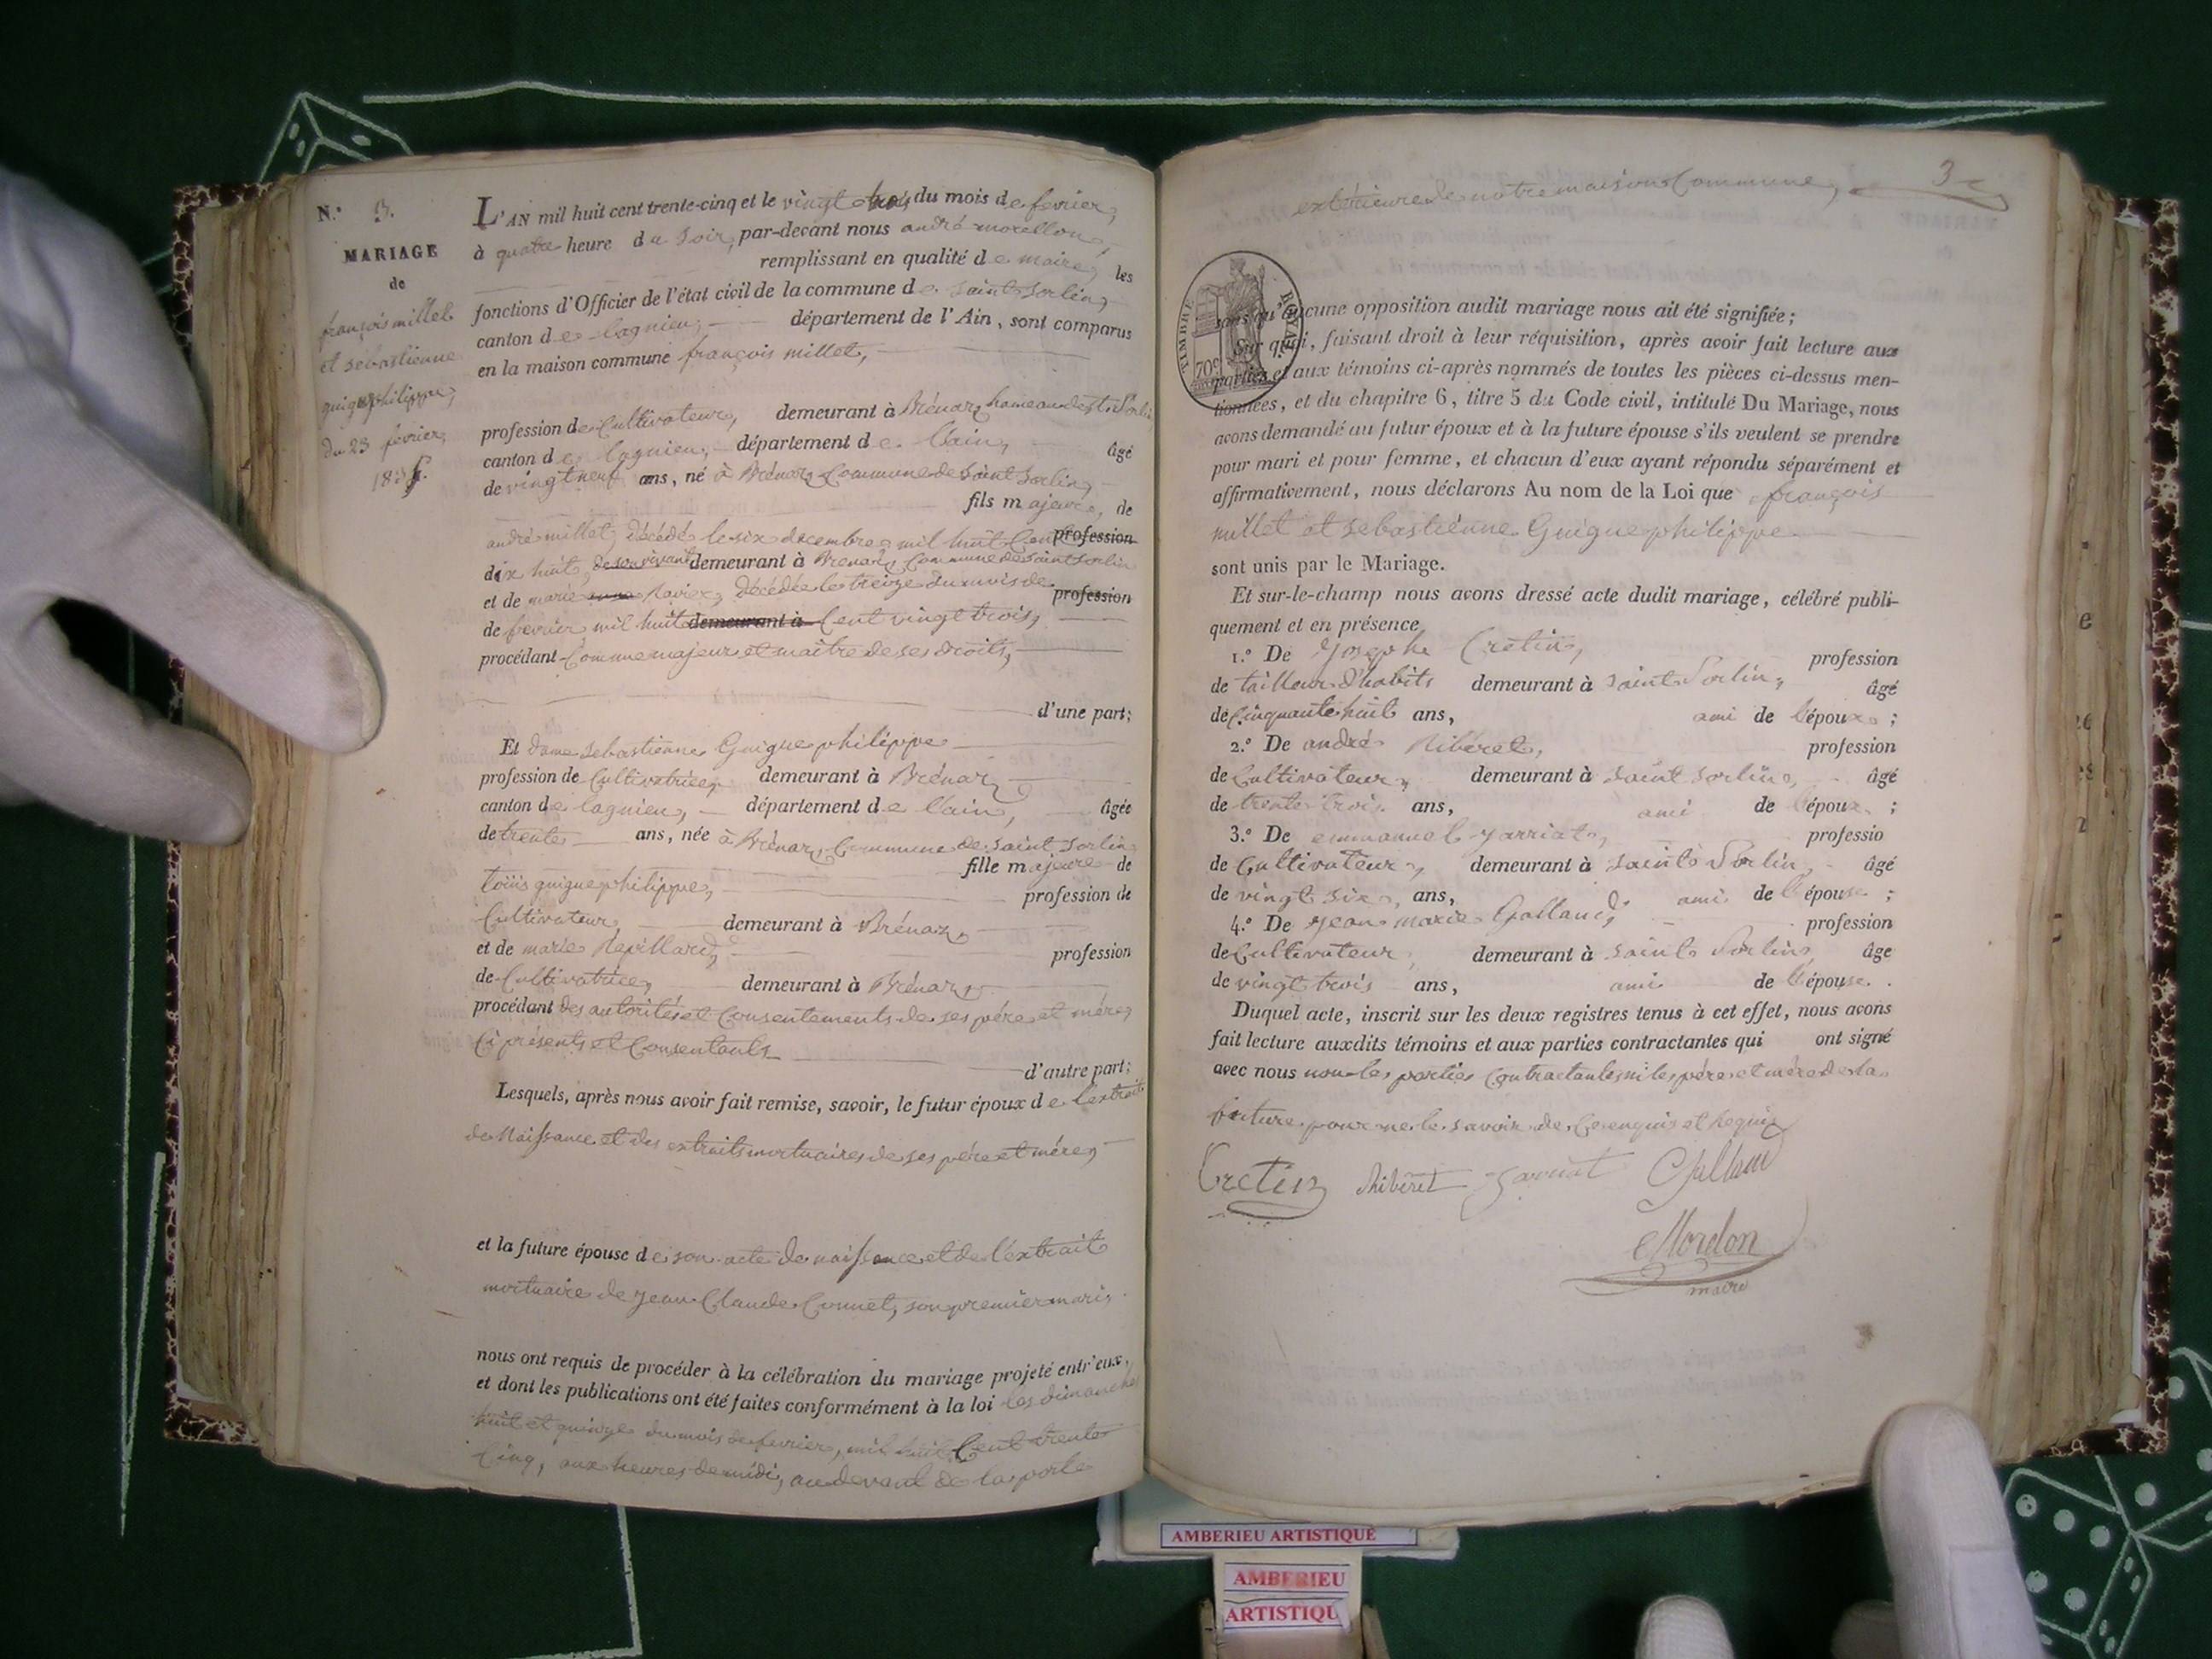 N.° 3.
MARIAGE
de
françois millet
et sebastienne
guigue philippe,
du 23 fevrier,
1835.
L'AN mil huit cent trente-cinq et le vingt trois du mois de fevrier,
à quatre heure du soir, par-devant nous andré morellon,
remplissant en qualité de maire, les
fonctions d'Officier de l'état civil de la commune de saint Sorlin,
canton de lagnieu, département de l'Ain, sont comparus
en la maison commune françois millet,
profession de Cultivateur, demeurant à Brénaz, hameau de St. Sorlin
canton de lagnieu, département de l'ain, âgé
de vingt neuf ans, né à Brénaz Commune de Saint Sorlin,
fils majeur, de
andré millet, décédé le six decembre mil huit Cent profession
dix huit, de son vivant demeurant à Brénaz, Commune de Saint Sorlin
et de marie Ravier, décédée le treize du mois de profession
de fevrier mil huit demeurant à Cent vingt trois,
procédant Comme majeur et maitre de ses droits,
d'une part;
Et dame sebastienne Guigue philippe
profession de Cultivatrice, demeurant à Brénaz
canton de lagnieu, département de l'ain, âgée
de trente ans, née à Brénaz, Commune de Saint Sorlin
fille majeure de
loüis guigue philippe, profession de
Cultivateur, demeurant à Brénaz,
et de marie Revillard, profession
de Cultivatrice, demeurant à Brénaz,
procédant des autorités et Consentements de ses pére et mére,
Ci présents et Consentants
d'autre part;
Lesquels, après nous avoir fait remise, savoir, le futur époux de l'extrait
de Naissance et des extraits mortuaires de ses pére et mére,
et la future épouse de son acte de naissance et de l'extrait
mortuaire de jean Claude Connet, son premier mari,
nous ont requis de procéder à la célébration du mariage projeté entr'eux,
et dont les publications ont été faites conformément à la loi les dimanches
huit et quinze du mois de fevrier, mil huit Cent trente
Cinq, aux heures de midi, au devant de la porte
3
extérieure de notre maison Commune,
TIMBRE ROYAL
70c
sans qu'aucune opposition audit mariage nous ait été signifiée;
Sur quoi, faisant droit à leur réquisition, après avoir fait lecture aux
parties et aux témoins ci-après nommés de toutes les pièces ci-dessus men-
tionnées, et du chapitre 6, titre 5 du Code civil, intitulé Du Mariage, nous
avons demandé au futur époux et à la future épouse s'ils veulent se prendre
pour mari et pour femme, et chacun d'eux ayant répondu séparément et
affirmativement, nous déclarons Au nom de la Loi que françois
millet et sebastiénne Guigue philippe
sont unis par le Mariage.
Et sur-le-champ nous avons dressé acte dudit mariage, célébré publi-
quement et en présence
1.° De Josephe Cretin, profession
de tailleur d'habits demeurant à Saint Sorlin, âgé
de Cinquante huit ans, ami de l'époux ;
2.° De andré Ribéret, profession
de Cultivateur, demeurant à saint sorlin, âgé
de trente trois ans, ami de l'époux ;
3.° De emmanuel jarriat, professio
de Cultivateur, demeurant à saint Sorlin, âgé
de vingt six, ans, ami de l'épouse ;
4.° De jean marie Galland, profession
de Cultivateur, demeurant à saint Sorlin, âge
de vingt trois ans, ami de l'épouse .
Duquel acte, inscrit sur les deux registres tenus à cet effet, nous avons
fait lecture auxdits témoins et aux parties contractantes qui ont signé
avec nous non les parties Contractantes, ni les pére et mére de la
future pour ne le savoir de Ce enquis et Requis
Cretin Ribéret Jarriat Galland
Morellon
maire
AMBERIEU ARTISTIQUE
AMBERIEU
ARTISTIQU